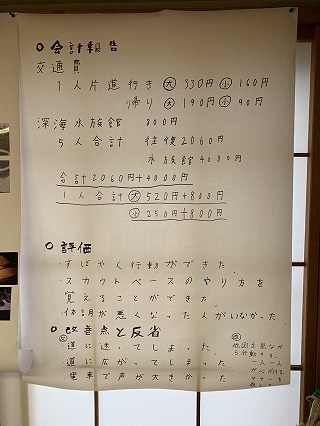 ○会計報告
交通費
1人片道行き 大 330円 小 160円
帰り 大 190円 小 90円
深海水族館 800円
5人合計 往復2060円
水族館4000円
合計2060円+4000円
1人合計 大 520円+800円
小 250円+800円
○評価
・すばやく行動ができた
・スカウトペースのやり方を
覚えることができた
・体調が悪くなった人がいなかった
○改善点と反省
道に迷ってしまった
道に広がってしまった
電車で声が大きかった
地図を見なが
ら行動する。
一人一人